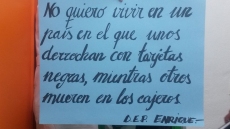 No quiero vivir en un
país en el que unos
derrochan con tarjetas
negras, mientras otros
mueren en los cajeros.
D.E.P. ENRIQUE.-